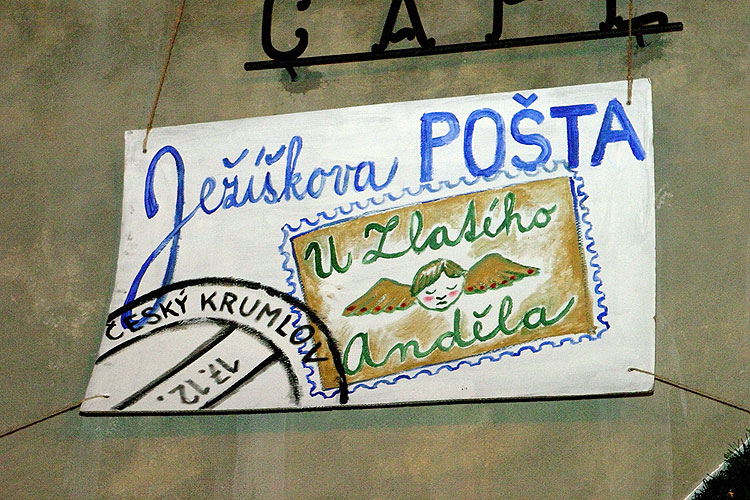 CAFE
Ježíškova POŠTA
U Zlatého
Anděla
ČESKÝ KRUMLOV
17.12.